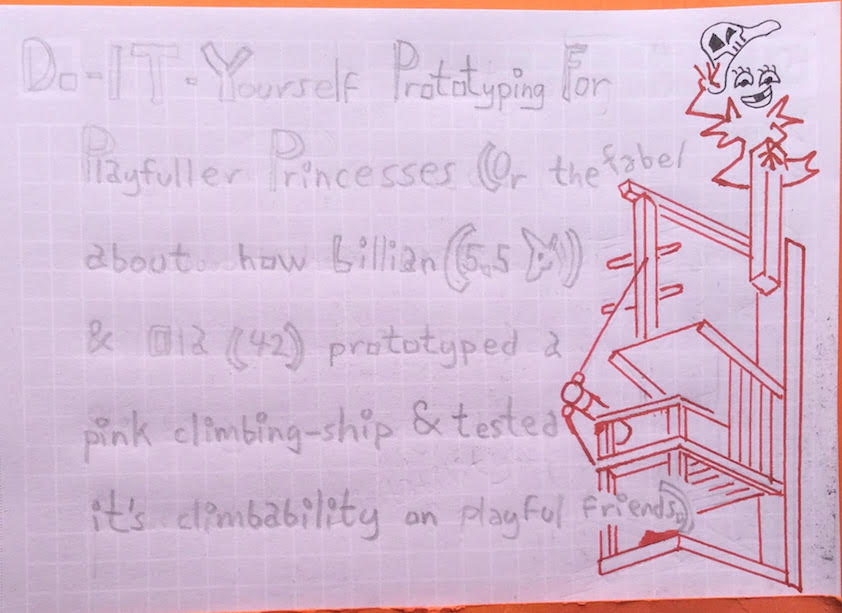 Do-IT-Yourself Prototyping For
Playfuller Princesses (Or the fabel
about how billian ((5.5))
& (42) prototyped a
pink climbing-ship & tested
it's climbability on playful friends)